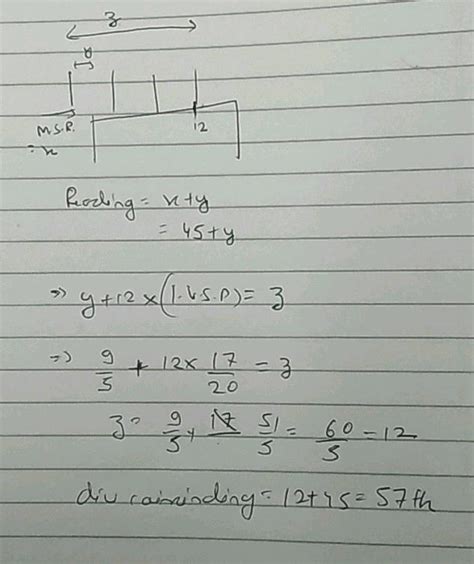 z
y
M.S.R. 12
= x
Reading = x+y
= 45+y
=> y+12×(1.V.S.D)= z
=> 9/5 + 12× 17/20 = z
z = 9/5 + 51/5 = 60/5 = 12
div coinciding = 12+45 = 57th